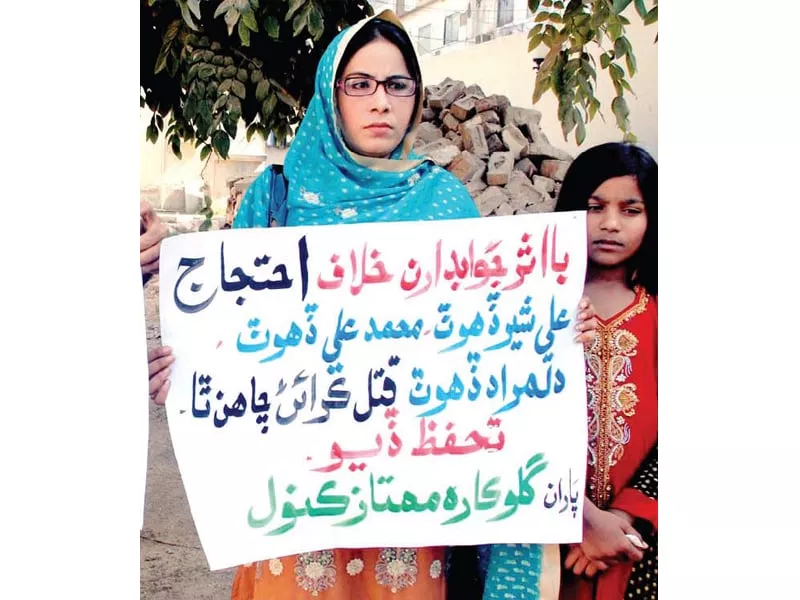 بااثر جوابدارن خلاف احتجاج
علي شير ڏهوٽ، محمد علي ڏهوٽ،
دلمراد ڏهوٽ قتل ڪرائڻ چاهن ٿا۔
تحفظ ڏيو۔
پاران گلوڪاره ممتاز ڪنول